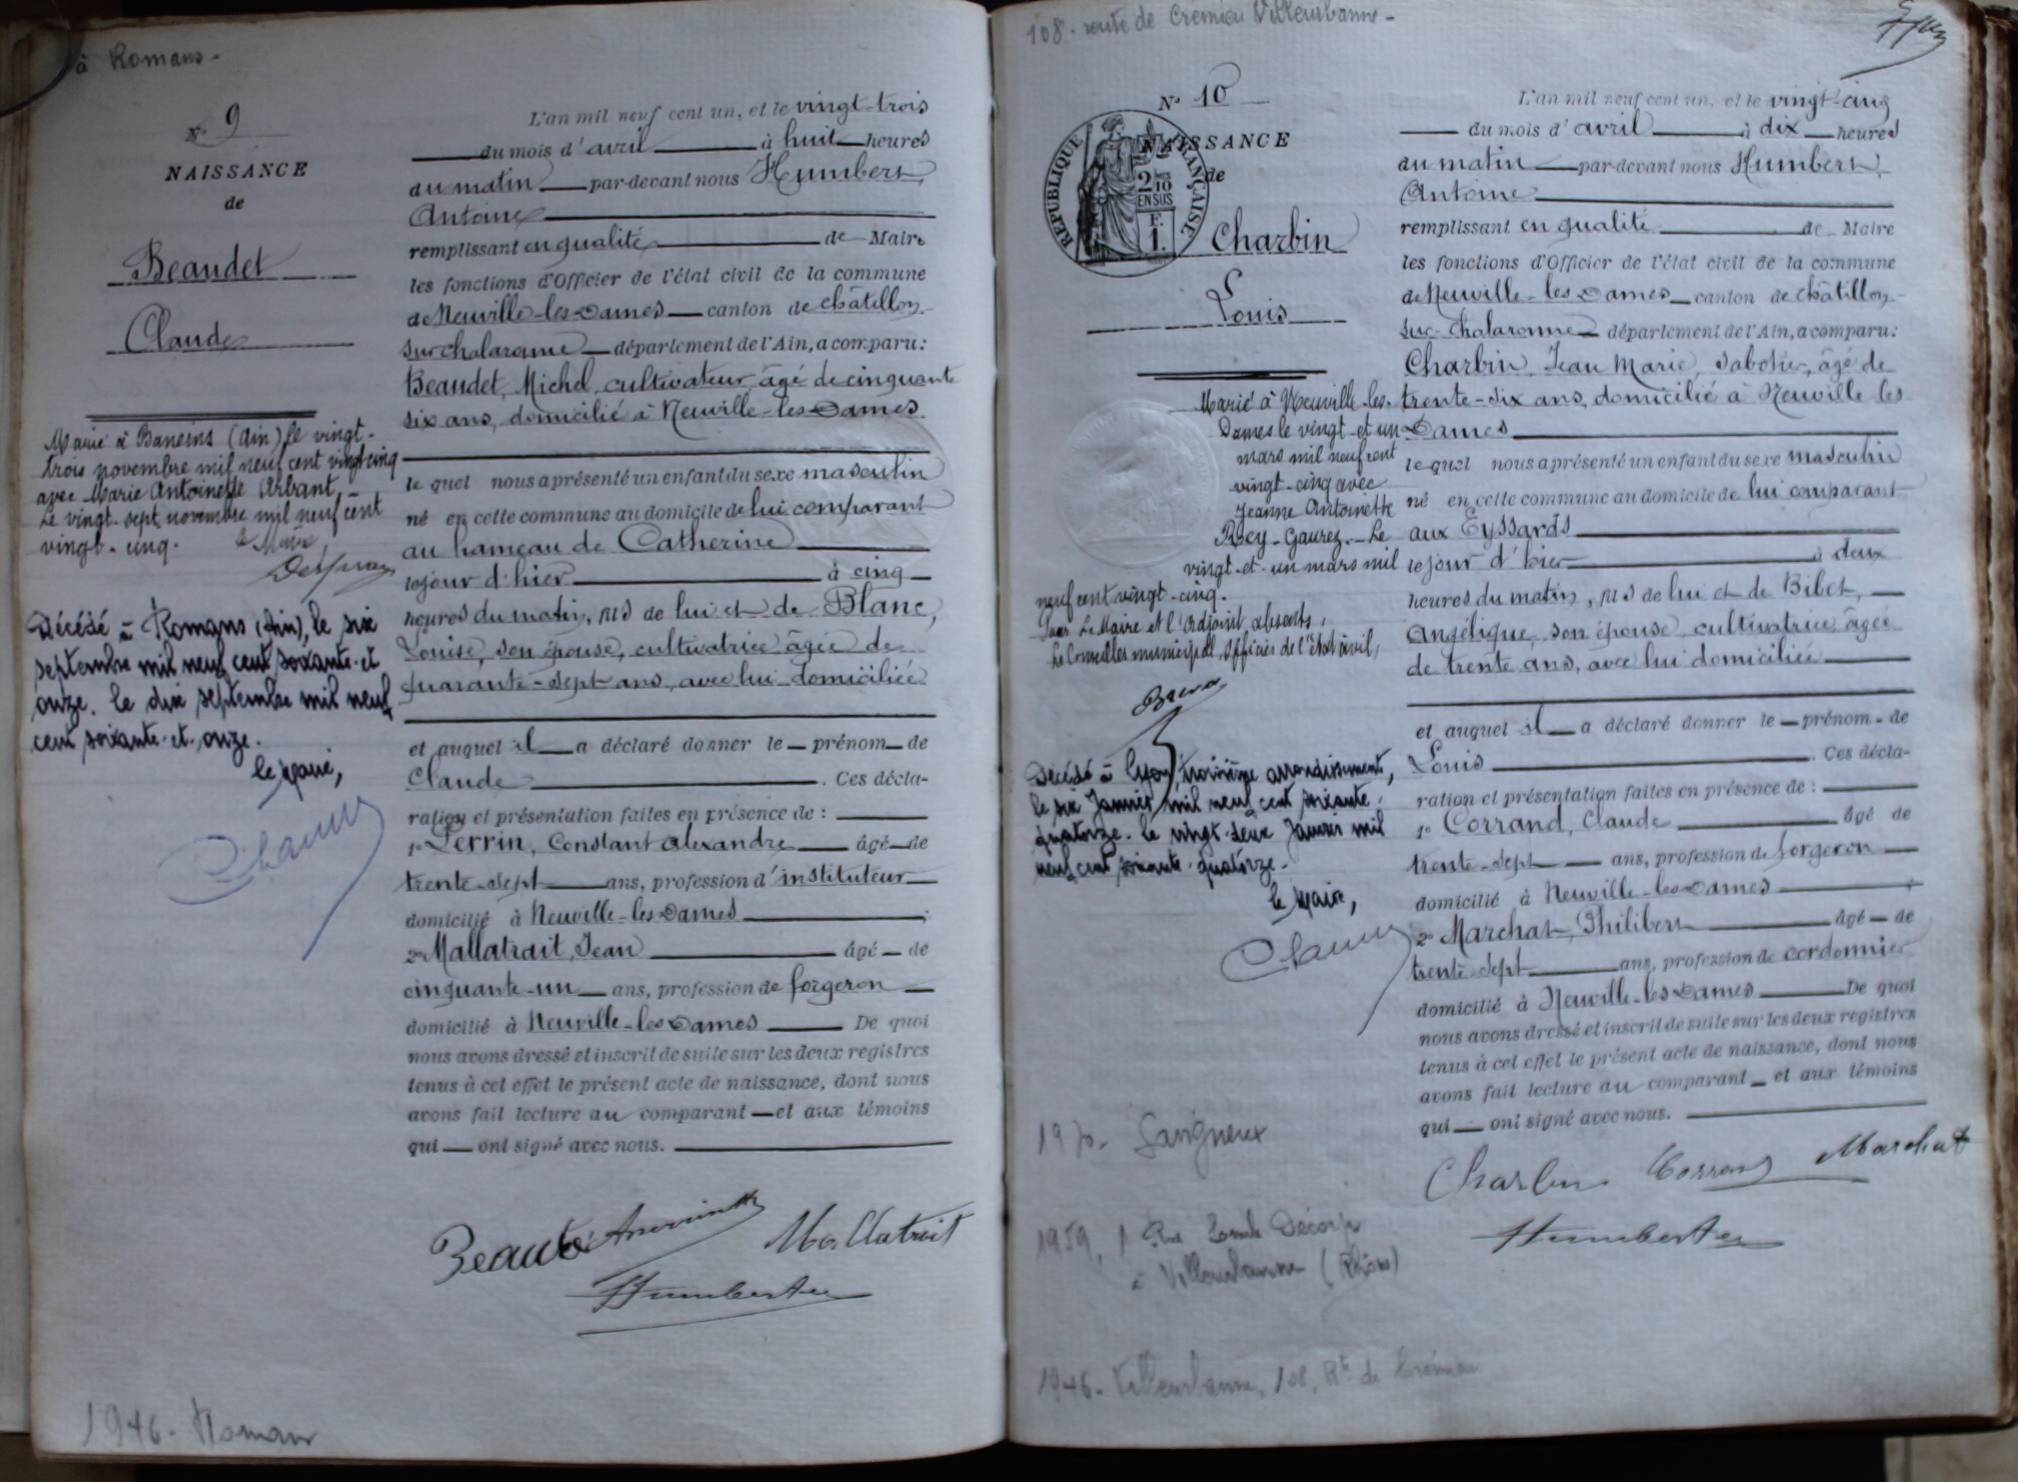 à Romans.
Nº 9
NAISSANCE
de
Beaudet
Claude
Marié à Baneins (Ain) le vingt-
trois novembre mil neuf cent vingt cinq
avec Marie Antoinette Arbant,
Le vingt-sept novembre mil neuf cent
vingt-cinq. le Maire,
Décédé à Romans (Ain), le six
septembre mil neuf cent soixante et
onze. le dix septembre mil neuf
cent soixante et onze.
le Maire,
L'an mil neuf cent un, et le vingt-trois
du mois d'avril à huit heures
du matin par-devant nous Humbert,
Antoine
remplissant en qualité de Maire
les fonctions d'Officier de l'état civil de la commune
de Neuville-les-Dames canton de châtillon-
sur chalaronne département de l'Ain, a comparu:
Beaudet, Michel, cultivateur, âgé de cinquante
six ans, domicilié à Neuville-les-Dames
le quel nous a présenté un enfant du sexe masculin
né en cette commune au domicile de lui comparant
au hameau de Catherine
le jour d'hier à cinq
heures du matin, fils de lui et de Blanc,
Louise, son épouse, cultivatrice âgée de
quarante-sept ans, avec lui domiciliée
et auquel il a déclaré donner le prénom de
Claude. Ces décla-
ration et présentation faites en présence de :
1º Perrin, Constant alexandre âgé de
trente-sept ans, profession d'instituteur
domicilié à Neuville-les-Dames ;
2º Mallatrait, Jean âgé de
cinquante-un ans, profession de forgeron
domicilié à Neuville-les-Dames De quoi
nous avons dressé et inscrit de suite sur les deux registres
tenus à cet effet le présent acte de naissance, dont nous
avons fait lecture au comparant et aux témoins
qui ont signé avec nous.
Mallatrait
Humbert
1946. Romans
108. route de Cremieu Villeurbanne-
Nº 10
NAISSANCE
de
RÉPUBLIQUE FRANÇAISE
2/10
EN SUS
F.
1.
Charbin
Louis
Marié à Neuville-les-
Dames le vingt et un
mars mil neuf cent
vingt-cinq avec
Jeanne Antoinette
Le
vingt-et-un mars mil
neuf cent vingt-cinq.
Pour Le Maire et l'Adjoint absents,
Le Conseiller municipal, Officier de l'état civil,
Décédé à Lyon troisième arrondissement,
le six Janvier mil neuf cent soixante
quatorze. le vingt-deux Janvier mil
neuf cent soixante-quatorze.
le Maire,
L'an mil neuf cent un, et le vingt-cinq
du mois d'avril à dix heures
du matin par-devant nous Humbert,
Antoine
remplissant en qualité de Maire
les fonctions d'Officier de l'état civil de la commune
de Neuville-les-Dames canton de châtillon-
sur-Chalaronne département de l'Ain, a comparu:
Charbin, Jean Marie, sabotier, âgé de
trente-six ans, domicilié à Neuville les
Dames
le quel nous a présenté un enfant du sexe masculin
né en cette commune au domicile de lui comparant
aux Eyssards
le jour d'hier à deux
heures du matin, fils de lui et de Bibet,
Angélique, son épouse, cultivatrice âgée
de trente ans, avec lui domiciliée
et auquel il a déclaré donner le prénom de
Louis. Ces décla-
ration et présentation faites en présence de :
1º Corrand, Claude âgé de
trente-sept ans, profession de forgeron
domicilié à Neuville-les-Dames ;
2º Marchat, Philibert âgé de
trente-sept ans, profession de cordonnier
domicilié à Neuville-les-Dames De quoi
nous avons dressé et inscrit de suite sur les deux registres
tenus à cet effet le présent acte de naissance, dont nous
avons fait lecture au comparant et aux témoins
qui ont signé avec nous.
Charbin Corrand Marchat
Humbert
1970. Savigneux
1959, 1 Rue
à Villeurbanne (Rhône)
1946. Villeurbanne, 108, Rte de Crémieu